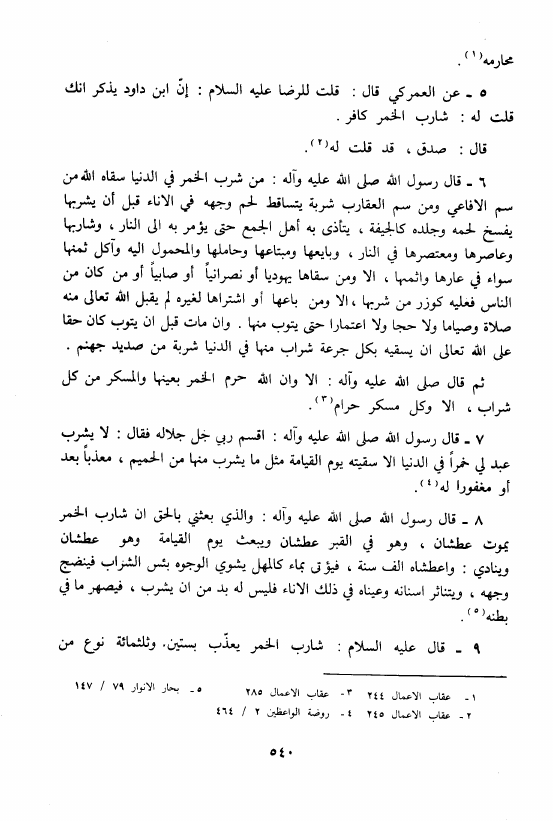 محارمه(١).
٥ ـ عن العمركي قال : قلت للرضا عليه السلام : إنّ ابن داود يذكر انك
قلت له : شارب الخمر كافر .
قال : صدق ، قد قلت له(٢).
٦ ـ قال رسول الله صلى الله عليه وآله : من شرب الخمر في الدنيا سقاه الله من
سم الافاعي ومن سم العقارب شربة يتساقط لحم وجهه في الاناء قبل أن يشربها
يفسخ لحمه وجلده كالجيفة ، يتأذى به أهل الجمع حتى يؤمر به الى النار ، وشاربها
وعاصرها ومعتصرها في النار ، وبايعها ومبتاعها وحاملها والمحمول اليه وآكل ثمنها
سواء في عارها واثمها ، الا ومن سقاها يهوديا أو نصرانياً أو صابياً أو من كان من
الناس فعليه كوزر من شربها ، الا ومن باعها أو اشتراها لغيره لم يقبل الله تعالى منه
صلاة وصياما ولا حجا ولا اعتمارا حتى يتوب منها . وان مات قبل ان يتوب كان حقا
على الله تعالى ان يسقيه بكل جرعة شراب منها في الدنيا شربة من صديد جهنم .
ثم قال صلى الله عليه وآله : الا وان الله حرم الخمر بعينها والمسكر من كل
شراب ، الا وكل مسكر حرام(٣).
٧ ـ قال رسول الله صلى الله عليه وآله : اقسم ربي جل جلاله فقال : لا يشرب
عبد لي خمراً في الدنيا الا سقيته يوم القيامة مثل ما يشرب منها من الحميم ، معذباً بعد
أو مغفورا له(٤).
٨ ـ قال رسول الله صلى الله عليه وآله : والذي بعثني بالحق ان شارب الخمر
يموت عطشان ، وهو في القبر عطشان ويبعث يوم القيامة وهو عطشان
وينادي : واعطشاه الف سنة ، فيؤتى بماء كالمهل يشوي الوجوه بئس الشراب فينضج
وجهه ، ويتناثر اسنانه وعيناه في ذلك الاناء فليس له بد من ان يشرب ، فيصهر ما في
بطنه(٥).
٩ ـ قال عليه السلام : شارب الخمر يعذّب بستين. وثلثمائة نوع من
١- عقاب الاعمال ٢٤٤ ٣- عقاب الاعمال ٢٨٥ ٥- بحار الانوار ٧٩ / ١٤٧
٢- عقاب الاعمال ٢٤٥ ٤- روضة الواعظين ٢ / ٤٦٤
٥٤٠